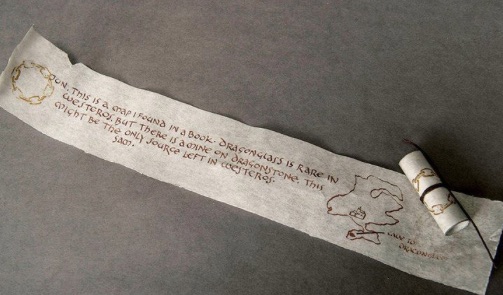 Jon. This is a map I found in a book. Dragonglass is rare in
Westeros, but there is a mine on Dragonstone. This
might be the only source left in Westeros.
Sam.